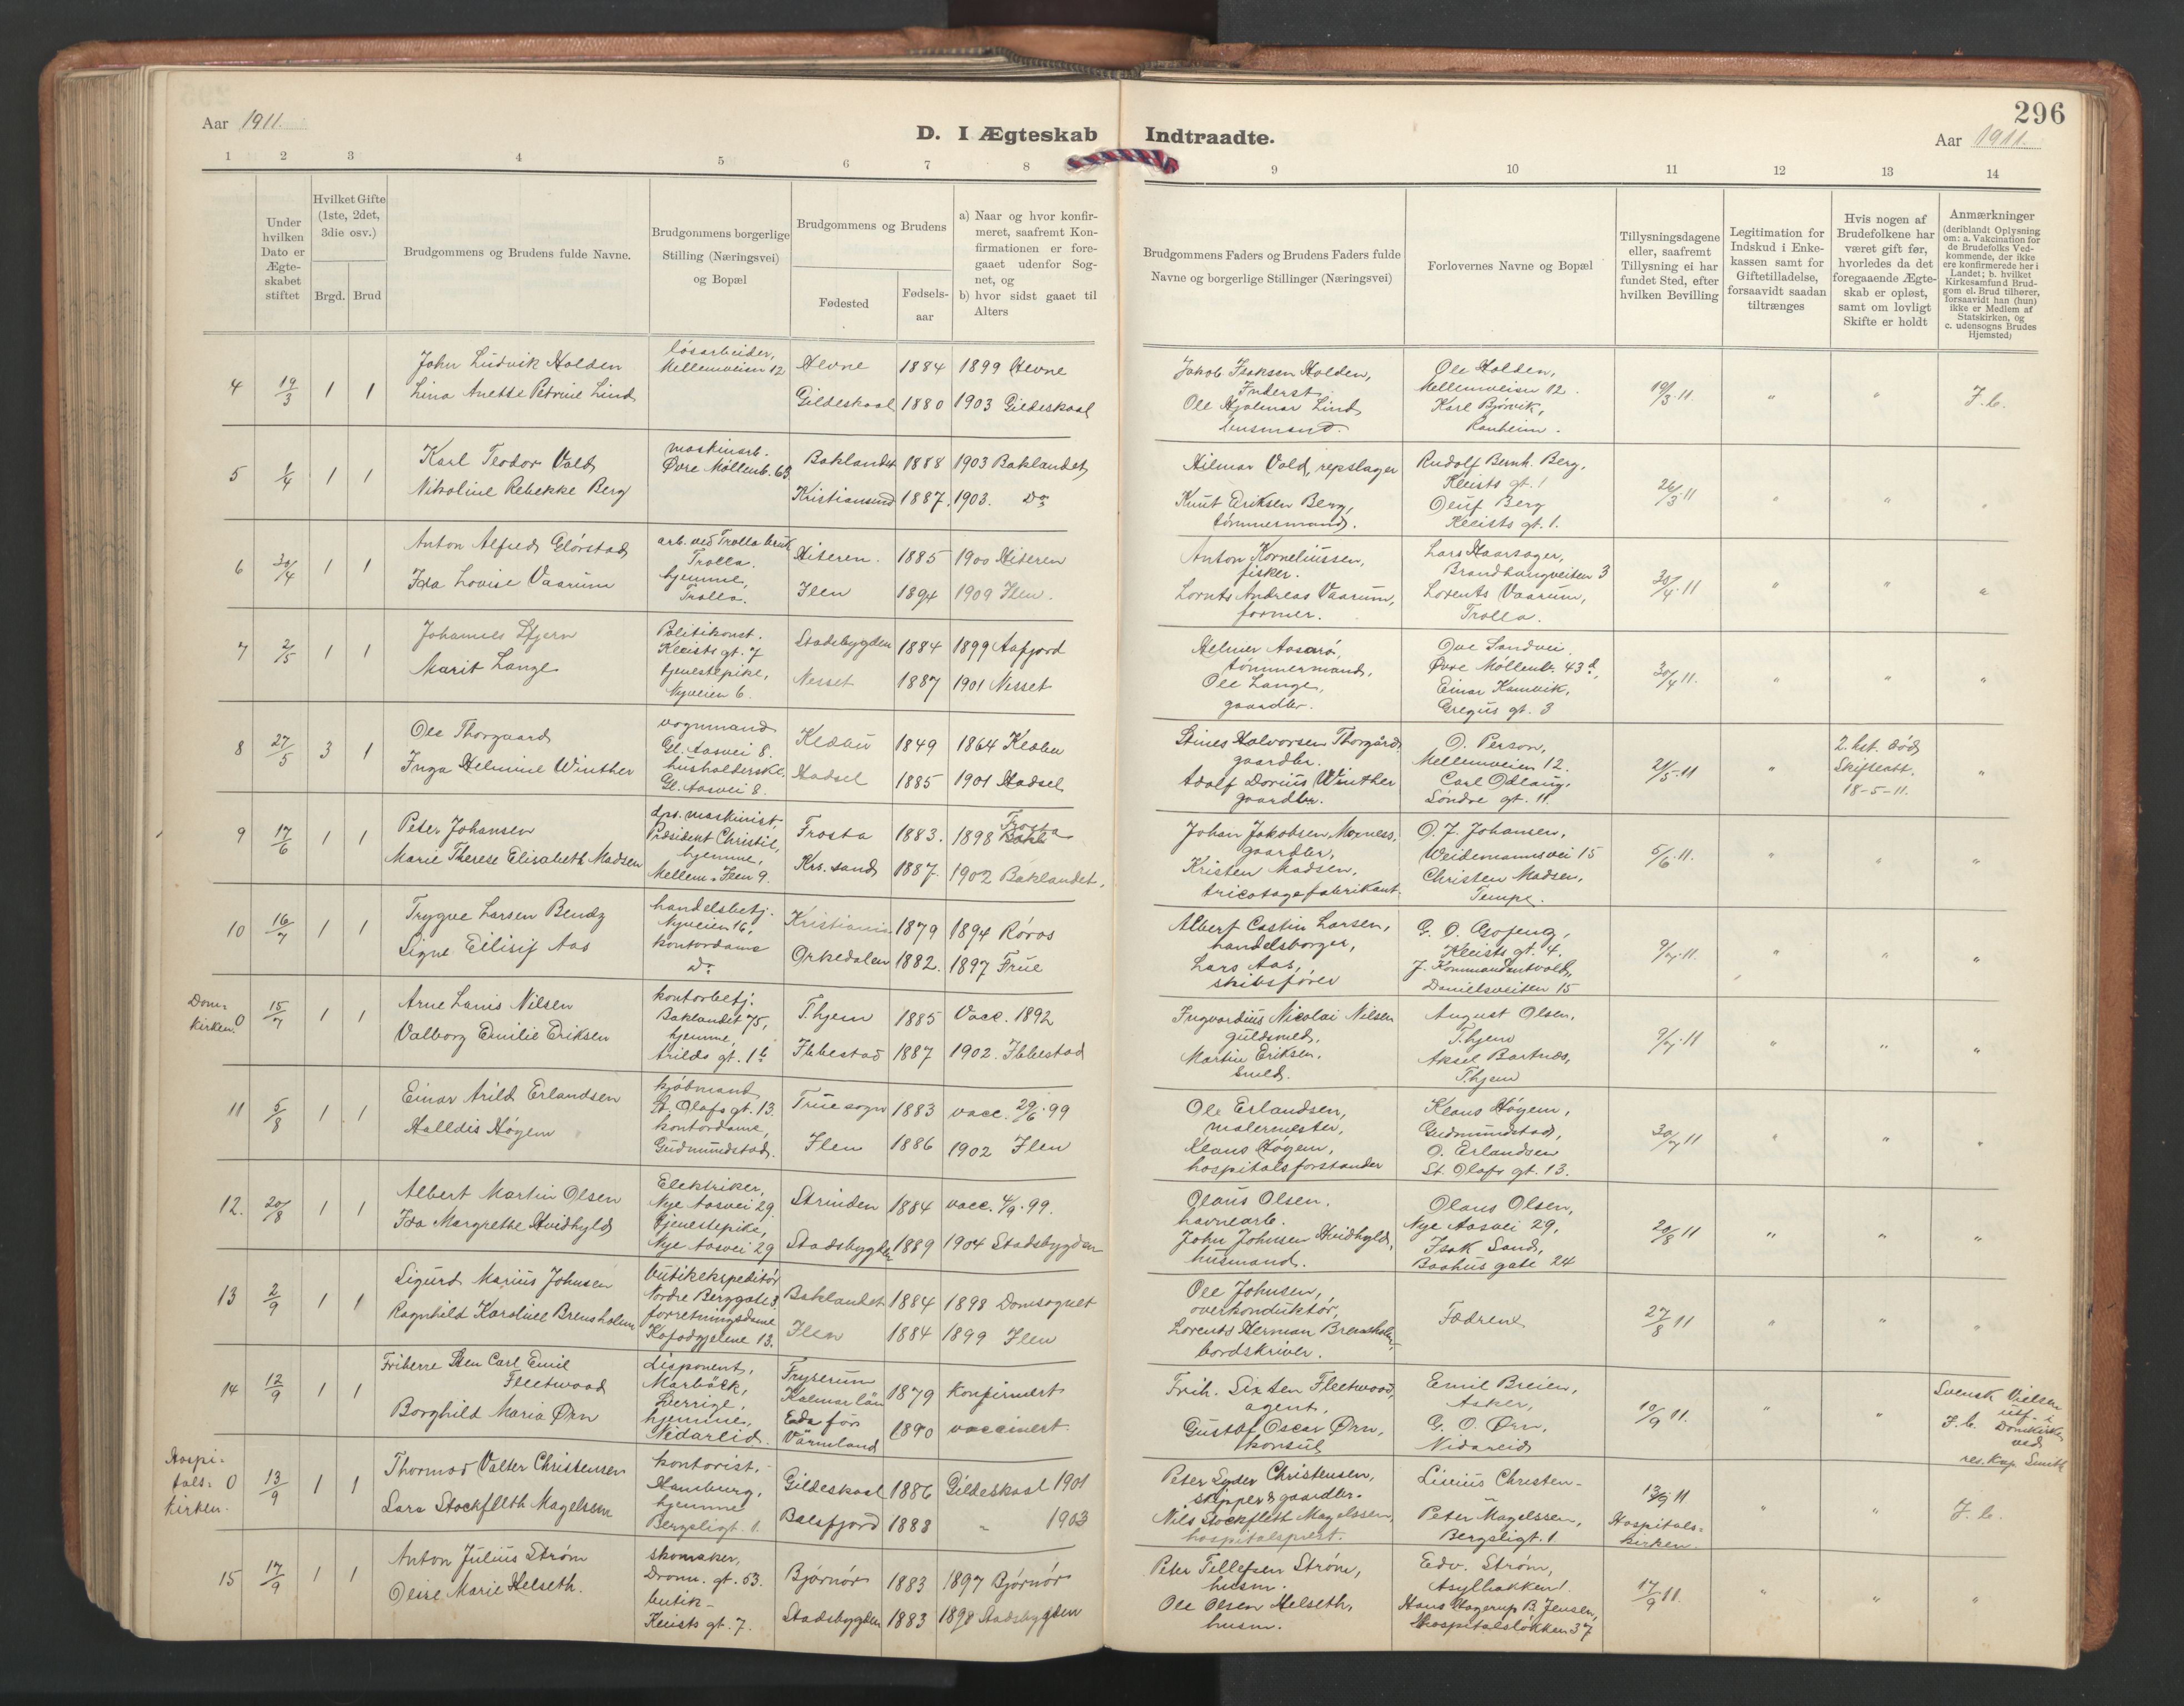 296
Aar 1911.
D. I Ægteskab Indtraadte.
Aar 1911.
1 2 3 4 5 6 7 8 9 10 11 12 13 14
Under hvilken Dato er Ægteskabet stiftet
Hvilket Gifte (1ste, 2det, 3die osv.)
Brgd. Brud
Brudgommens og Brudens fulde Navne.
Brudgommens borgerlige Stilling (Næringsvei) og Bopæl
Brudgommens og Brudens
Fødested
Fødsels-aar
a) Naar og hvor konfir-
meret, saafremt Kon-
firmationen er fore-
gaaet udenfor Sog-
net, og
b) hvor sidst gaaet til
Alters
Brudgommens Faders og Brudens Faders fulde
Navne og borgerlige Stillinger (Næringsvei)
Forlovernes Navne og Bopæl
Tillysningsdagene
eller, saafremt
Tillysning ei har
fundet Sted, efter
hvilken Bevilling
Legitimation for
Indskud i Enke-
kassen samt for
Giftetilladelse,
forsaavidt saadan
tiltrænges
Hvis nogen af
Brudefolkene har
været gift før,
hvorledes da det
foregaaende Ægte-
skab er opløst,
samt om lovligt
Skifte er holdt
Anmærkninger
(deriblandt Oplysning
om: a. Vakcination for
de Brudefolks Ved-
kommende, der ikke
ere konfirmerede her i
Landet; b. hvilket
Kirkesamfund Brud-
gom el. Brud tilhører,
forsaavidt han (hun)
ikke er Medlem af
Statskirken, og
c. udensogns Brudes
Hjemsted)
4 19/3 1 1 John Ludvik Holden løsarbeider, Mellemveien 12 Hevne 1884 1899 Hevne
Lina Anette Petrine Lind Gildeskaal 1880 1903 Gildeskaal
Jakob Isaksen Holden, Inderst Ole Holden, Mellemveien 12. 19/3.11 " " F. b.
Ole Hjalmar Lind husmand. Karl Bjørvik, Ranheim.
5 1/4 1 1 Karl Teodor Vold maskinarb. Øvre Møllenb. 63 Baklandet 1888 1903 Baklandet
Nikoline Rebekke Berg Kristiansund 1887. 1903. Do
Hilmar Vold, repslager Rudolf Bernh. Berg, Kleists gt. 1 26/3.11 " " "
Knut Eriksen Berg, tømmermand. Oluf Berg Kleists gt. 1.
6 30/4 1 1 Anton Alfred Glørstad arb. ved Trolla bruk Trolla. Hiteren. 1885 1900 Hiteren
Ida Lovise Vaarum hjemme, Trolla. Ilen 1894 1909 Ilen.
Anton Korneliussen, fisker. Lars Haarsager, Brandhaugveiten 3 30/4.11 " " "
Lornts Andreas Vaarum, former. Lorents Vaarum, Trolla.
7 2/5 1 1 Johannes Stjern Politikonst. Kleists gt. 7 Stadsbygden 1884 1899 Aafjord
Marit Lange tjenestepike, Nyveien 6. Nesset 1887 1901 Nesset
Helmer Aasarø, tømmermand, Ove Sandvei, Øvre Møllenb. 43d, 30/4 11. " " "
Ole Lange, gaardbr. Einar Kamvik, Gregus gt. 3
8 27/5 3 1 Ole Thorgaard vognmand Gl. Aasvei 8. Klæbu 1849 1864 Klæbu
Inga Helmine Winther husholderske, Gl. Aasvei 8. Hadsel 1885 1901 Hadsel
Stines Halvorsen Thorgård, gaardbr. O. Person, Mellemveien 12. 21/5-11 " 2. hst. død Skifteatt. 18-5-11. "
Adolf Dorius Winther gaardbr. Carl Odlaug, Søndre gt. 11.
9 17/6 1 1 Peter Johansen dps. maskinist, Præsident Christie, Frosta 1883. 1898 Frosta
Marie Therese Elisabeth Madsen hjemme, Mellem-Ilen 9. Krs. sand 1887. 1902 Baklandet.
Johan Jakobsen Moxness, gaardbr, O. J. Johansen, Weidemannsvei 15 5/6.11. " " "
Kristen Madsen, tricotagefabrikant. Christen Madsen, Tempe.
10 16/7 1 1 Trygve Larsen Bendz handelsbetj. Nyveien 16, Kristiania 1879 1894 Røros
Signe Eilisif Aas kontordame Do Orkedalen 1882. 1897 Frue
Albert Castin Larsen, handelsborger, G. O. Gojeng, Kleists gt. 4. 9/7.11. " " "
Lars Aas, skibsfører J. Kommandantvold, Danielsveiten 15
Dom-
kirken. 0 15/7 1 1 Arne Lauis Nilsen kontorbetj. Baklandet 75, T.hjem 1885 Vacc. 1892
Valborg Emilie Eriksen hjemme, Arilds gt. 1b Ibbestad 1887 1902. Ibbestad
Ingvardius Nicolai Nilsen guldsmed, August Olsen, T.hjem 9/7.11 " " "
Martin Eriksen, smed. Aksel Bartnes, T.hjem
11 5/8 1 1 Einar Arild Erlandsen kjøbmand St. Olafs gt. 13. Frue sogn 1883 vacc. 29/6.99
Halldis Høyem kontordame, Gudmundstad. Ilen 1886 1902 Ilen
Ole Erlandsen, malermester, Klaus Høyem, Gudmundstad, 30/7 11 " " "
Klaus Høyem, hospitalsforstander O. Erlandsen St. Olafs gt. 13.
12. 20/8 1 1 Albert Martin Olsen Elektriker, Nye Aasvei 29. Strinden 1884 vacc. 4/9.99.
Ida Margrethe Hvidhyld tjenestepike, Nye Aasvei 29 Stadsbygden 1889 1904 Stadsbygden
Olaus Olsen. havnearb. Olaus Olsen, Nye Aasvei 29, 20/8 11 " " "
John Johnsen Hvidhyld, husmand. Isak Sand, Baahus gate 24
13 2/9 1 1 Sigurd Marius Johnsen butikekspeditør Nordre Berggate 3. Baklandet 1884 1898 Domsognet
Ragnhild Karoline Bremsholm forretningsdame Ilen 1884 1899 Ilen
Ole Johnsen, overkonduktør, Fædrene 27/8 11 " " "
Lorents Herman Bremsholm, bordskriver.
14 12/9 1 1 Friherre Sten Carl Emil Fleetwood disponent, Marbäck, Sverrige, Fryserum Kalmar län 1879 konfirmert
Borghild Maria Ørn hjemme, Nidareid. Eda för Värmland 1890 vaccinert.
Frih. Sixten Fleetwood, agent, Emil Breien, Asker, 10/9 11. " " Svensk Vielsen utf. i Domkirken ved res. kap. Smith
Gustaf Oscar Ørn, konsul G. O. Ørn, Nidareid F. b.
Hospi-
tals-
kirken. 0 13/9 1 1 Thormod Valter Christensen kontorist, Hamburg, Gildeskaal 1886 Gildeskaal 1901
Lara Stockfleth Magelssen hjemme Bergsligt. 1. Balsfjord 1888 " 1903
Peter Lyder Christensen, skipper & gaardbr. Lisius Christen- 13/9 11 Hospitals-kirken. " " F. b.
Nils Stockfleth Magelssen, hospitalsprest. Peter Magelssen, Bergsligt. 1
15 17/9 1 1 Anton Julius Strøm skomaker, Dronn. gt. 53. Bjørnør 1883 1897 Bjørnør
Oline Marie Helseth. butik- Kleists gt. 7. Stadsbygden 1883 1898 Stadsbygden
Peter Tellefsen Strøm, husm. Edv. Strøm, Asylbakken 1. 17/9 11. " " "
Ole Olsen Helseth, husm. Hans Hagerup B. Jensen, Hospitalsløkken 37